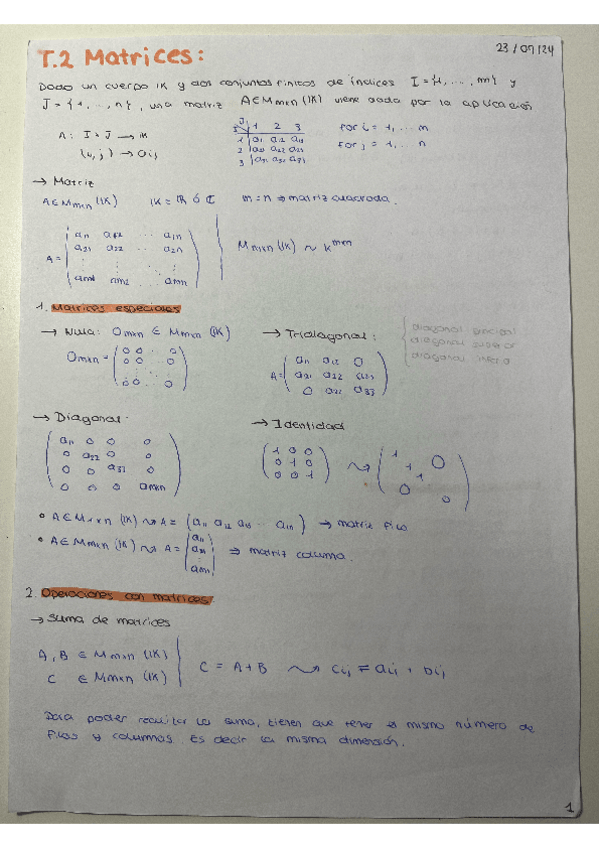 T.2 Matrices:
23/09/24
Dado un cuerpo IK y dos conjuntos finitos de índices I = {1, ..., m} y
J = {1, ..., n}, una matriz A ∈ Mmxn (IK) viene dada por la aplicación
A: I × J → IK
(i, j) → aij
J 1 2 3
I
1 a11 a12 a13
2 a21 a22 a23
3 a31 a32 a33
for i = 1, ... m
for j = 1, ... n
→ Matriz
A ∈ Mmxn (IK) IK = IR ó ℂ m = n ⇒ matriz cuadrada.
A = ( a11 a12 ... a1n
a21 a22 ... a2n
am1 am2 ... amn )
Mmxn (IK) ~ K^mxn
1. Matrices especiales
→ Nula: Omxn ∈ Mmxn (IK)
Omxn = ( 0 0 ... 0
0 0 ... 0
0 0 ... 0 )
→ Tridiagonal:
diagonal principal
diagonal superior
diagonal inferior
A = ( a11 a12 0
a21 a22 a23
0 a32 a33 )
→ Diagonal:
( a11 0 0 0
0 a22 0 0
0 0 a33 0
0 0 0 amn )
→ Identidad
( 1 0 0
0 1 0
0 0 1 ) ⤳ ( 1 1 1 0 0 0 )
• A ∈ Mmxn (IK) ⤳ A = (a11 a12 a13 ... a1n) → matriz fila
• A ∈ Mmxn (IK) ⤳ A = ( a11 a21 : am1 ) ⇒ matriz columna.
2. Operaciones con matrices
→ suma de matrices
A, B ∈ Mmxn (IK)
C ∈ Mmxn (IK)
C = A + B ⤳ cij = aij + bij
Para poder realizar la suma, tienen que tener el mismo número de
filas y columnas. Es decir la misma dimensión.
1